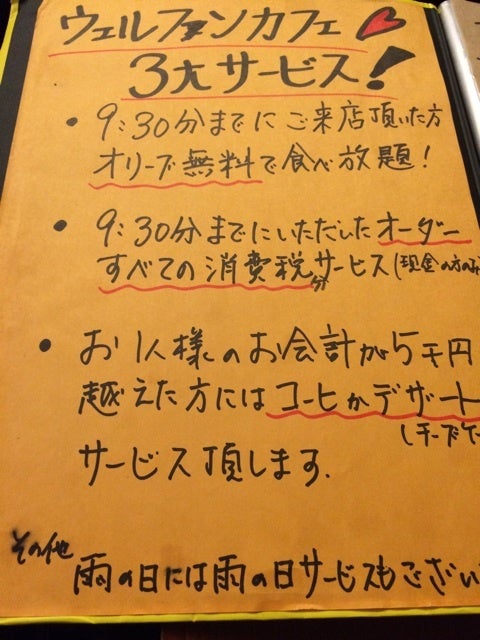 ウェルファンカフェ
3大サービス!
• 9:30分までにご来店頂いた方
オリーブ無料で食べ放題!
• 9:30分までにいただいたオーダー
すべての消費税分サービス(現金の方のみ
• お1人様のお会計が5千円
越えた方にはコーヒかデザート
(チーズケー
サービス頂します.
その他 雨の日には雨の日サービスもござい